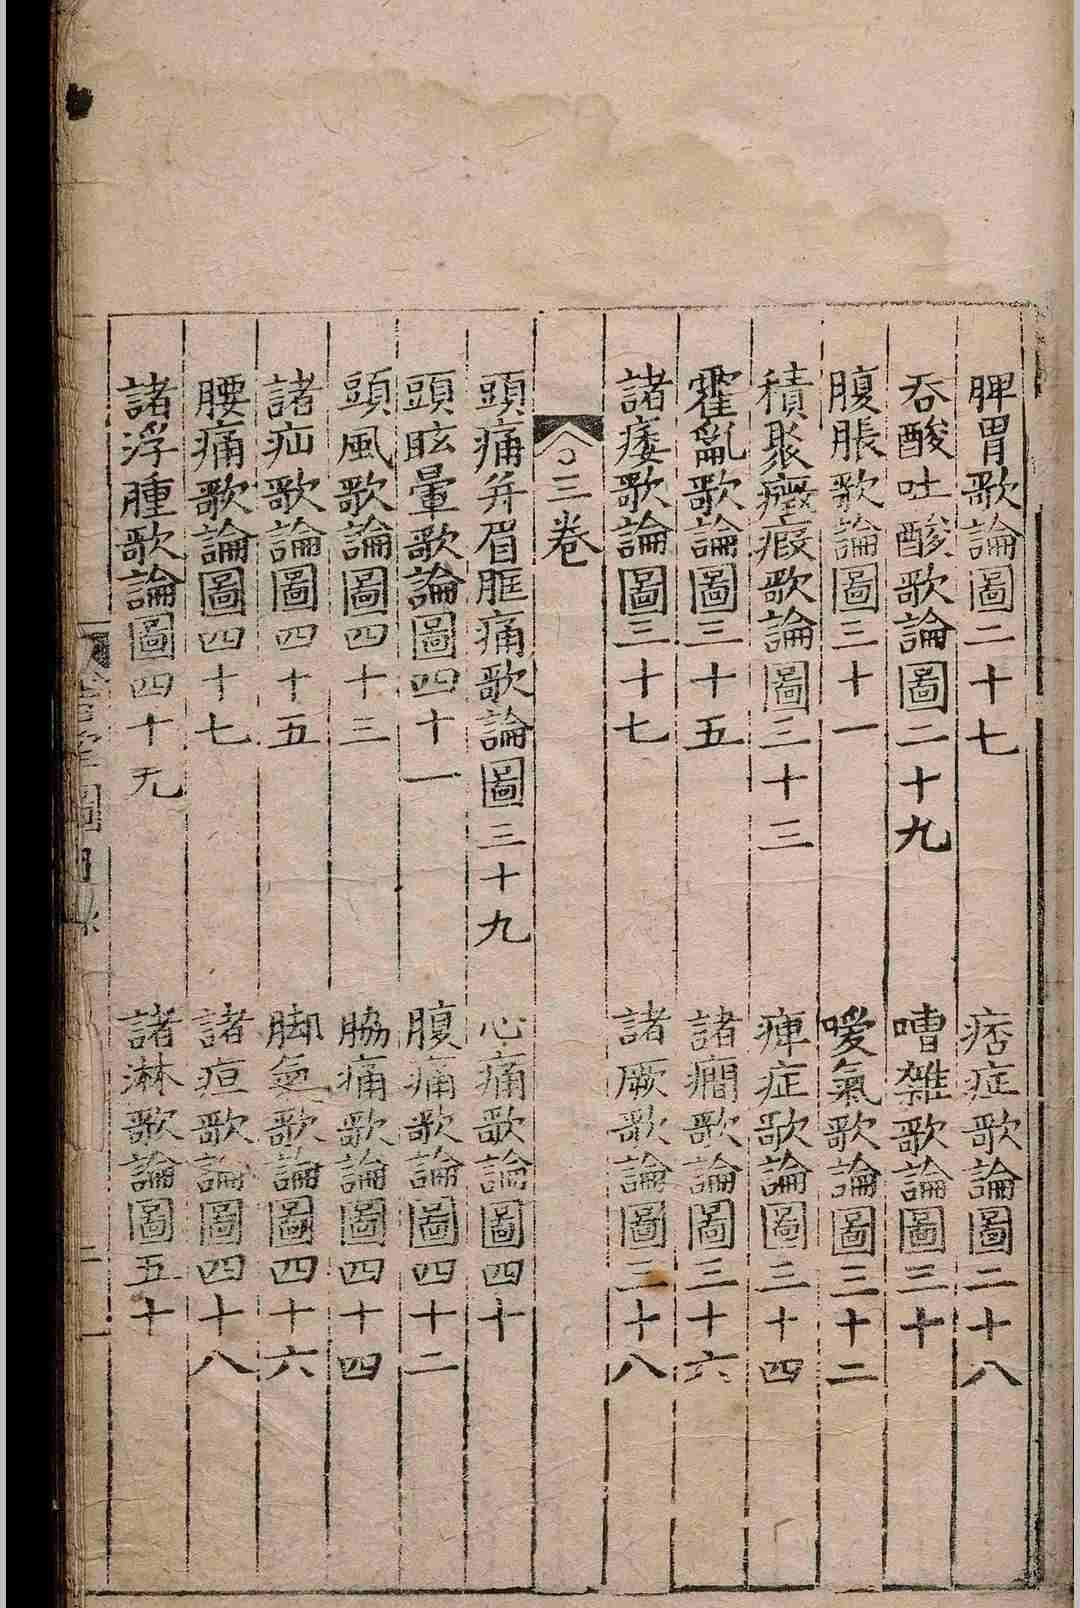 脾胃歌論圖二十七　痞症歌論圖二十八
吞酸吐酸歌論圖二十九　嘈雜歌論圖三十
腹脹歌論圖三十一　噯氣歌論圖三十二
積聚癥瘕歌論圖三十三　痺症歌論圖三十四
霍亂歌論圖三十五　諸癇歌論圖三十六
諸痿歌論圖三十七　諸厥歌論圖三十八
三卷
頭痛并眉眶痛歌論圖三十九　心痛歌論圖四十
頭眩暈歌論圖四十一　腹痛歌論圖四十二
頭風歌論圖四十三　脇痛歌論圖四十四
諸疝歌論圖四十五　脚氣歌論圖四十六
腰痛歌論圖四十七　諸疸歌論圖四十八
諸浮腫歌論圖四十九　諸淋歌論圖五十
堂圖目錄　二